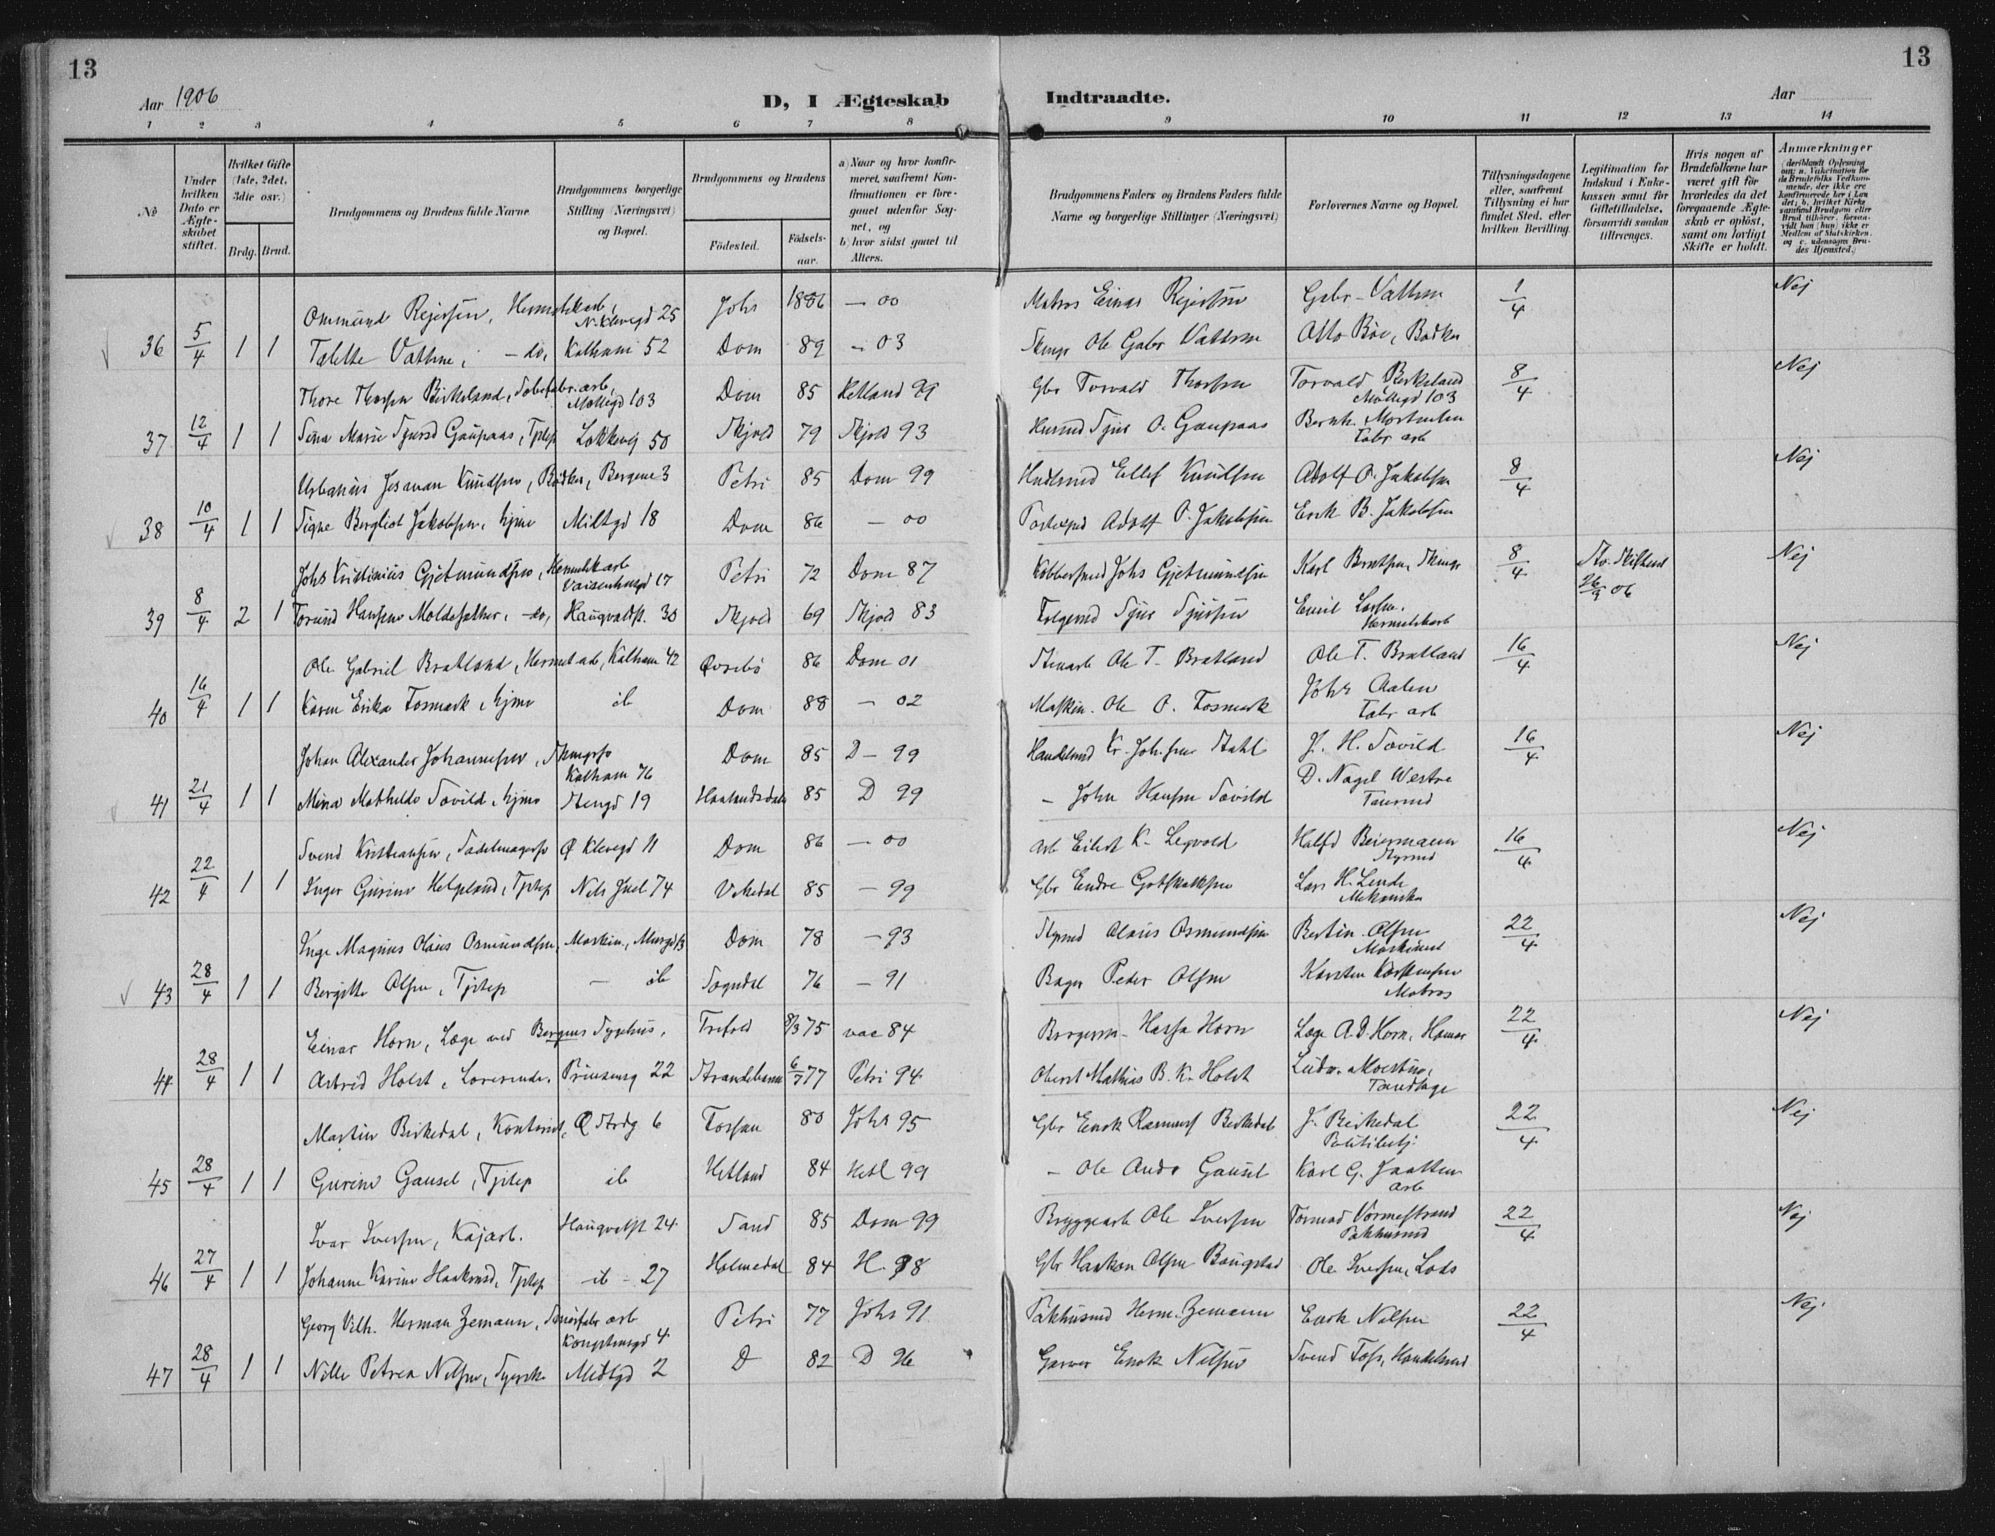 13
13
Aar 1906
D, I Ægteskab Indtraadte.
Aar
1 2 3 4 5 6 7 8 9 10 11 12 13 14
No
Under hvilken Dato er Ægteskabet stiftet.
Hvilket Gifte (1ste, 2det, 3die osv.)
Brdg. Brud.
Brudgommens og Brudens fulde Navne.
Brudgommens borgerlige Stilling (Næringsvei) og Bopæl.
Brudgommens og Brudens
Fødested. Fødselsaar.
a) Naar og hvor konfirmeret, saafremt Konfirmationen er foregaaet udenfor Sognet, og
b) hvor sidst gaaet til Alters.
Brudgommens Faders og Brudens Faders fulde Navne og borgerlige Stillinger (Næringsvei)
Forlovernes Navne og Bopæl.
Tillysningsdagene eller, saafremt Tillysning ei har fundet Sted, efter hvilken Bevilling.
Legitimation for Indskud i Enkekassen samt for Giftetilladelse, forsaavidt saadan tiltrænges.
Hvis nogen af Brudefolkene har været gift før hvorledes da det foregaaende Ægteskab er opløst, samt om lovligt Skifte er holdt.
Anmærkninger
Ommund Rejersen, N. Klevegd 25 Johs 1886 — 00 Matros Einar Rejersen Gabr. Vathne 1/4 Nej
36 5/4 1 1 Talette Vathne, — do, Kalham 52 Dom 89 — 03 Ole Gabr Vathne Otto Bøe, Bødker
Thore Thorsen Birkeland, arb, Møllegd 103 Dom 85 Hetland 99 Gbr Torvald Thorsen Torvald Birkeland Møllegd 103 8/4 Nej
37 12/4 1 1 Sina Marie Gaupaas, Tjpige Løkkevej 50 Skjold 79 Skjold 93 O. Gaupaas Bernh. Mortensen Fabr arb
Knudsen, Bødker, Bergene 3 Petri 85 Dom 99 Ellef Knudsen Adolf O. Jakobsen 8/4 Nej
38 10/4 1 1 Signe Bergliot Jakobsen, hjme Midtgd 18 Dom 86 — 00 Adolf O. Jakobsen Erik B. Jakobsen
Johs Kristinius Gjetmundsen, Hermetikarb Vaisenhusgd 17 Petri 72 Dom 87 Kobbersmed Johs Gjetmundsen Karl 8/4 Nej
39 8/4 2 1 Torund Hansen Moldesæther, — do, Haugvaldst. 30 Skjold 69 Skjold 83 Emil Larsen, Hermetikarb 26/9 06
Ole Gabriel Bratland, Hermet arb, Kalham 42 Øvrebø 86 Dom 01 Stenarb Ole T. Bratland Ole T. Bratland 16/4 Nej
40 16/4 1 1 Karen Erika Fosmark, hjme ib Dom 88 — 02 Maskin. Ole O. Fosmark Johs Aalen Fabr arb
Johan Alexander Johannesen, Kalham 76 Dom 85 D — 99 Handelsmd J. H. Tovild 16/4 Nej
41 21/4 1 1 Mina Mathilde Tovild, hjme Stengd 19 Haalandsdal 85 D 99 — John Hansen Tovild D. Nagel Westre
Svend Kristiansen, Sadelmagersv Ø Klevegd 11 Dom 86 — 00 arb Eilert K. Legvold Halfd Beiermann Styrmd 16/4 Nej
42 22/4 1 1 Inger Gurine Helgeland, Tjpige Nils Juel 74 Vikedal 85 — 99 Gbr Endre Gotskalksen Lars H. Lende Mekaniker
Inge Magnus Olaus Osmundsen, Maskin, Murgd 13 Dom 78 — 93 Styrmd Olaus Osmundsen Bertin Olsen Maskinist 22/4 Nej
43 28/4 1 1 Bergitte Olsen, Tjpige — ib Sogndal 76 — 91 Bager Peder Olsen Karsten Karstensen Matros
Einar Horn, Læge ved Bergens Sygehus, 8/3 75 vac 84 Horn Læge A. D. Horn, Hamar 22/4 Nej
44 28/4 1 1 Astrid Holst, Lærerinde, Prinsensg 22 Strandebarm 6/7 77 Petri 94 Oberst Mathias B. K. Holst Ludv. Moestue, Tandlæge
Martin Birkedal, Kontorist, Ø Strdg 6 Fossan 80 Johs 95 Gbr Enok Rasmus Birkedal J. Birkedal Politibetj 22/4 Nej
45 28/4 1 1 Gurine Gausel, Tjpige ib Hetland 84 Hetl 99 — Ole Ands Gausel Karl G. Jaatten arb
Ivar Iversen, Kajarb. Haugvaldst 24 Sand 85 Dom 99 Bryggearb Ole Iversen Tormod Vormestrand Pakhusmd 22/4 Nej
46 27/4 1 1 Johanne Karine Haakonsd, Tjpige — ib — 27 Holmedal 84 H. 98 Gbr Haakon Olsen Baugstad Ole Iversen, Lods
Georg Vilh. Herman Zemann, arb Kongstensgd 4 Petri 77 Johs 91 Pakhusmd Herm. Zemann Enok Nilsen 22/4 Nej
47 28/4 1 1 Nille Petrea Nilsen, Syerske Midtgd 2 D 82 D 96 Garver Enok Nilsen Svend Foss, Handelsmd